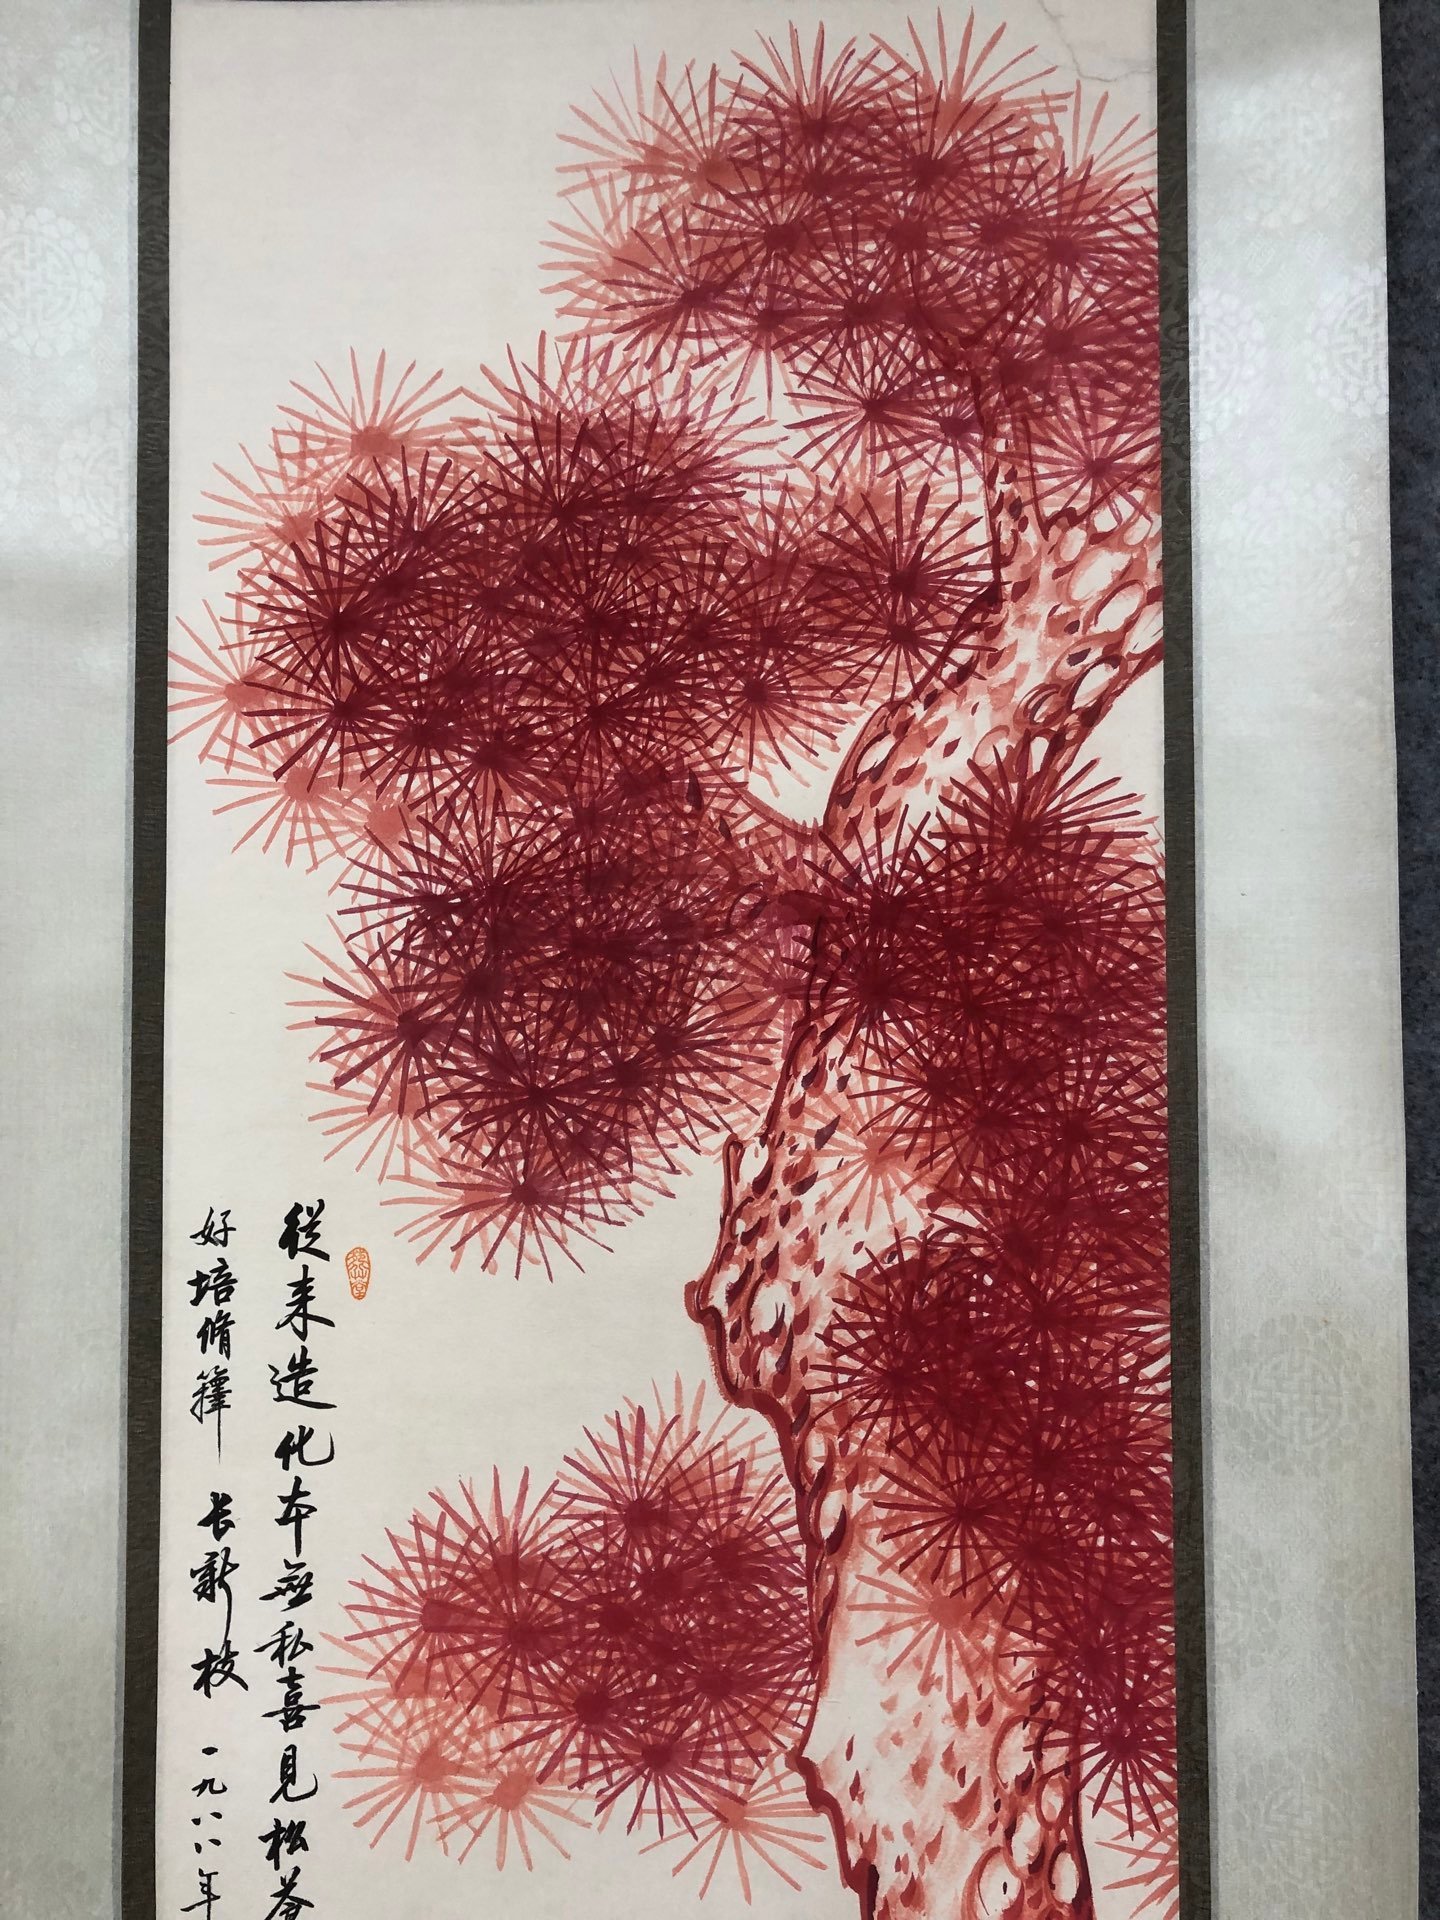 從来造化本無私喜見松
好培脩籜长新枝 一九八八年